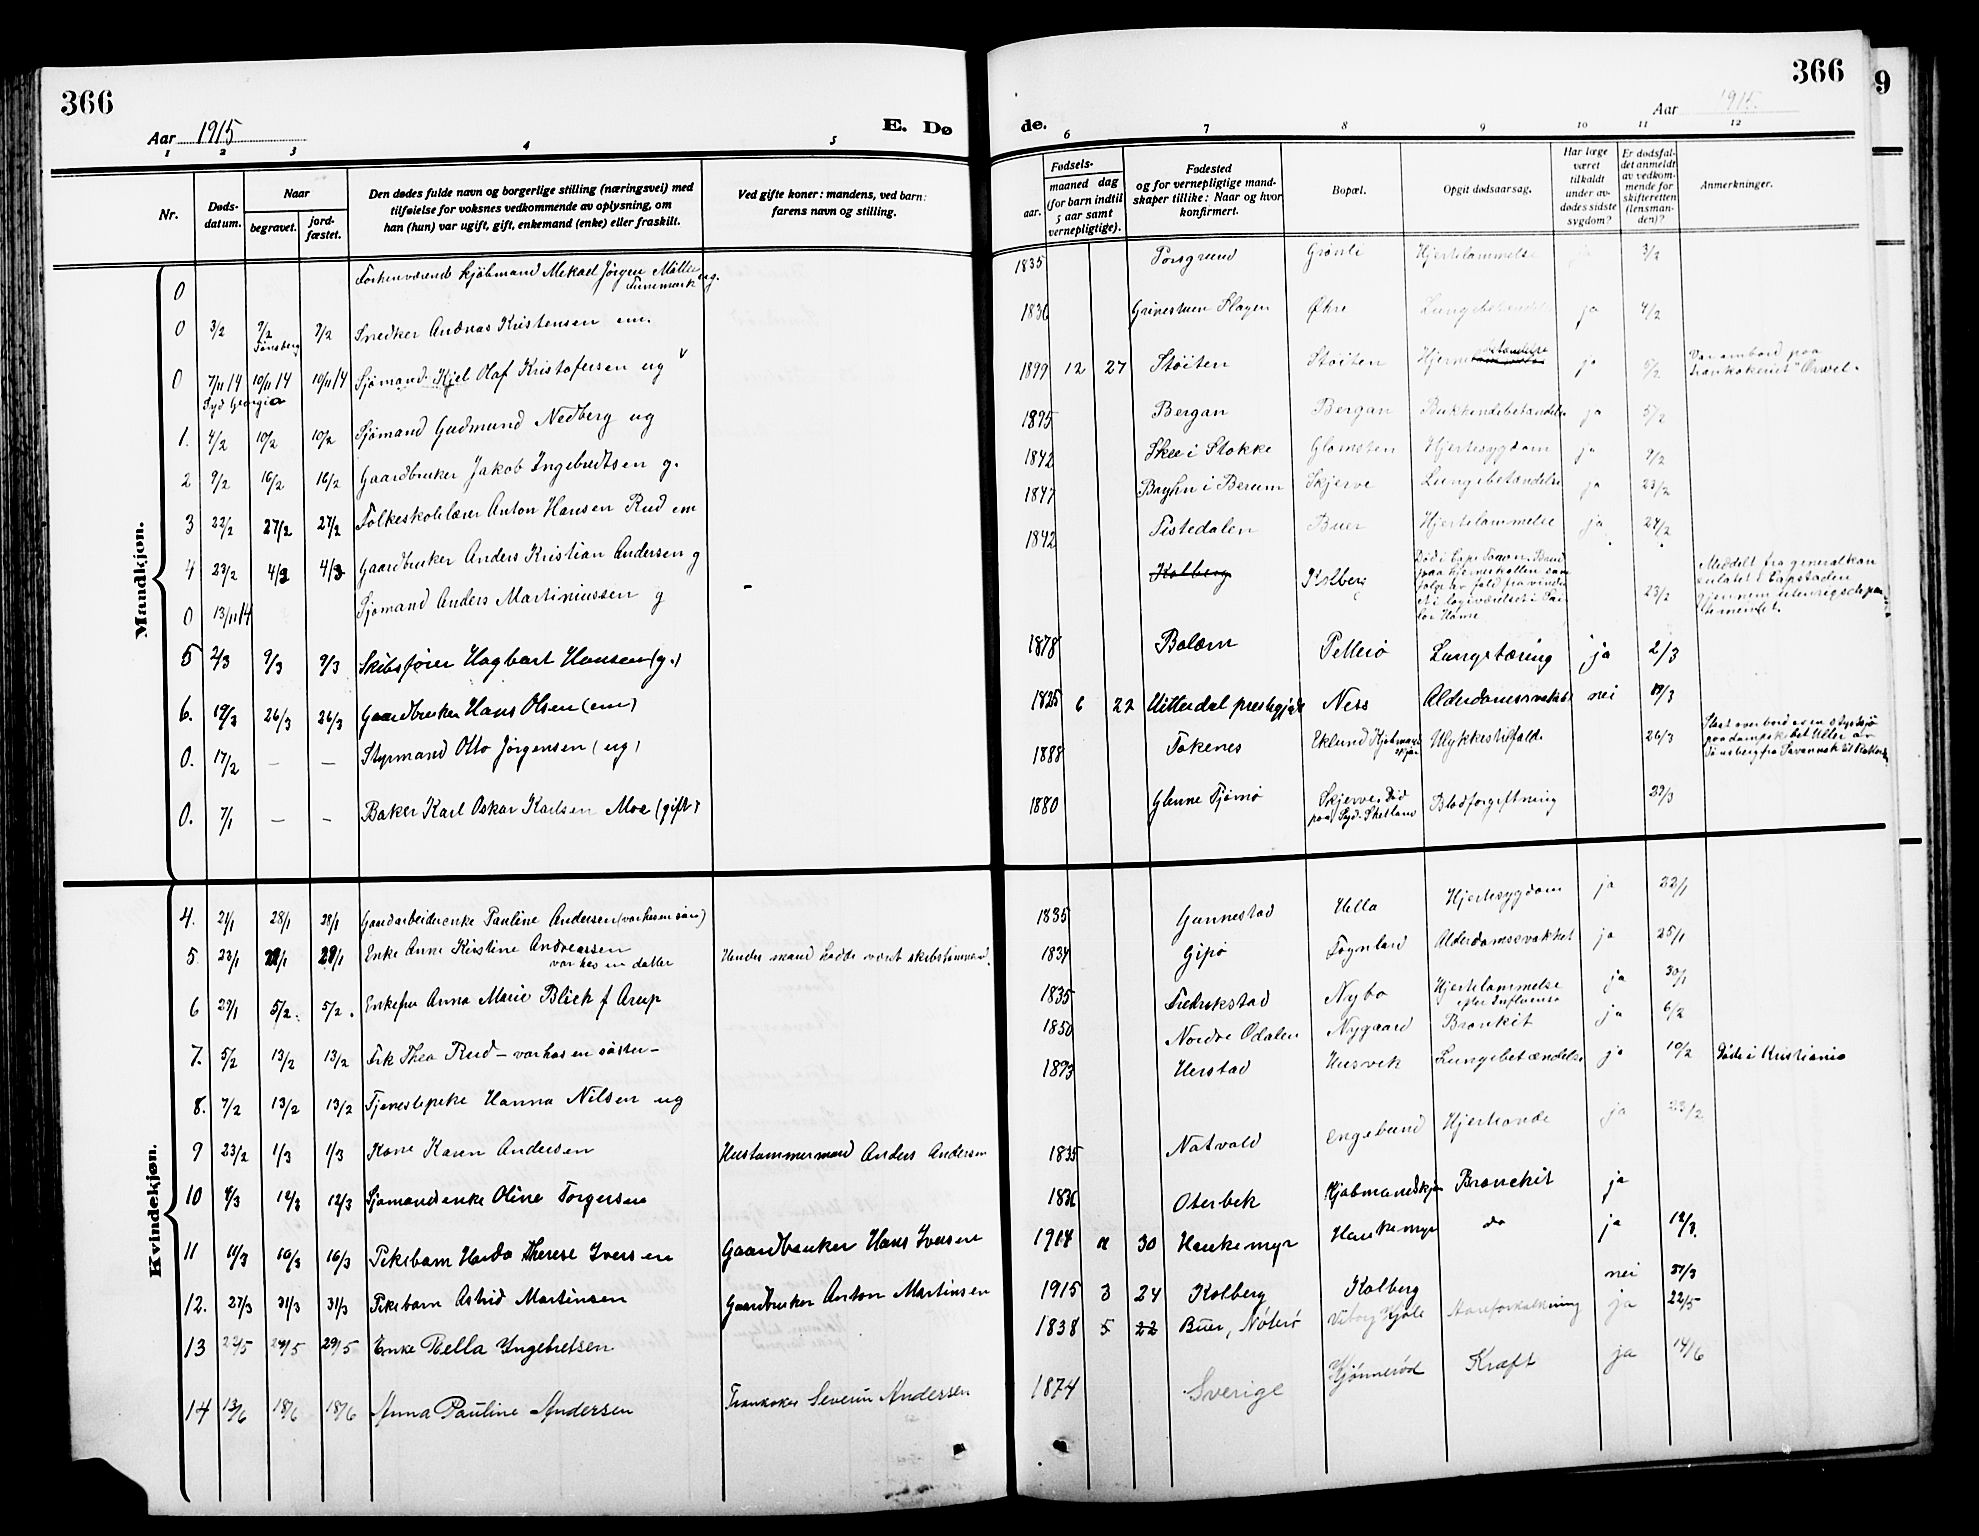 366
Aar 1915
E. Dø
de.
366
Aar 1915.
9
1 2 3 4 5 6 7 8 9 10 11 12
Nr.
Døds-
datum.
Naar
begravet.
jord-
fæstet.
Den dødes fulde navn og borgerlige stilling (næringsvei) med
tilføielse for voksnes vedkommende av oplysning, om
han (hun) var ugift, gift, enkemand (enke) eller fraskilt.
Ved gifte koner: mandens, ved barn:
farens navn og stilling.
Fødsels-
aar.
maaned dag
(for barn indtil
5 aar samt
vernepligtige).
Fødested
og for vernepligtige mand-
skaper tillike: Naar og hvor
konfirmert.
Bopæl.
Opgit dødsaarsag.
Har læge
været
tilkaldt
under av-
dødes sidste
sygdom?
Er dødsfal-
det anmeldt
av vedkom-
mende for
skifteretten
(lensman-
den)?
Anmerkninger.
Mandkjøn.
0 Forhenværende kjøbmand Mikael Jørgen Møller ug. 1835 Porsgrund Grønli Hjertelammelse ja 3/2
0 3/2 9/2 Tønsberg 9/2 Snedker Andreas Kristensen em. 1836 Slagen Øhre Lungebetændelse ja 4/2
0 7/11 14 10/11 14 10/11 14 Sjømand Kjel Olaf Kristofersen ug 1899 12 27 Støiten Støiten ja 5/2 Var ombord paa
Syd Georgia
1. 4/2 10/2 10/2 Sjømand Gudmund Nedberg ug 1895 Bergan Bergan ja 5/2
2 9/2 16/2 16/2 Gaardbruker Jakob Ingebretsen g. 1842 Skee i Stokke Glomsten Hjertesygdom ja 9/2
3 22/2 27/2 27/2 Folkeskolelærer Anton Hansen Rud em 1847 i Berum Skjerve Lungebetændelse ja 23/2
4 23/2 4/3 4/3 Gaardbruker Anders Kristian Andersen g 1842 Tistedalen Buer Hjertelammelse ja 24/2
0 13/11 14 Sjømand Anders Martiniussen g Kolberg Kolberg 23/2 Meddelt fra generalkon
sulatet i Capstaden
gjennem utenrigsdepar
tementet.
5 2/3 9/3 9/3 Skibsfører Hagbart Hansen (g.) 1878 Bolærn Pellerø Lungetæring ja 2/3
6. 19/3 26/3 26/3 Gaardbruker Hans Olsen (em) 1825 6 22 Hitterdal prestegjæld Ness Alderdomssvakhet nei 19/3
0. 17/2 – – Styrmand Otto Jørgensen (ug) 1888 Tokenes Eklund Kjøbmand skjær Ulykkestilfælde 26/3
0. 7/1 – – Baker Karl Oskar Karlsen Moe (gift) 1880 Glenne Tjømø Skjerve Død
paa Syd. Shetland Blodforgiftning 29/3
Kvindekjøn.
4. 21/1 28/1 28/1 Gaardarbeiderenke Pauline Andersen (var hos en søn) 1835 Gunnestad Hella Hjertesygdom ja 22/1
5. 23/1 29/1 29/1 Enke Anne Kirstine Andreassen
var hos en datter Hendes mand hadde været skibstømmermand. 1834 Gipø Alderdomssvakhet ja 25/1
6 29/1 5/2 5/2 Enkefru Anna Marie Blich f Arup 1835 Fredrikstad Nybo Hjertelammelse
efter Influensa ja 30/1
7. 5/2 13/2 13/2 Frk Thea Rud – var hos en søster – 1850 Nordre Odalen Nygaard Bronkit ja 6/2
8. 7/2 13/2 13/2 Tjenestepike Hanna Nilsen ug 1893 Herstad Husvik Lungebetændelse ja 10/2 Døde i Kristiania
9 23/2 1/3 1/3 Kone Karen Andersen Hustømmermand Anders Andersen 1835 Natvald Engebund Hjerteonde ja 23/2
10 4/3 12/3 12/3 Sjømandsenke Oline Torgersen 1836 Oterbek Kjøbmandskjær Bronchit ja
11 11/3 16/3 16/3 Pikebarn Harda Therese Iversen Gaardbruker Hans Iversen 1914 30 Haukemyr Haukemyr do ja 12/3.
12. 27/3 31/3 31/3 Pikebarn Astrid Martinsen Gaardbruker Anton Martinsen 1915 3 24 Kolberg Kolberg nei 27/3
13 22/5 29/5 29/5 Enke Pella Ingebretsen 1838 5 22 Buer, Nøterø Viborg Kjøle Aareforkalkning ja 22/5
14 13/6 18/6 18/6 Anna Pauline Andersen Trankoker Severin Andersen 1874 Sverige Hjønnerød Kræft ja 14/6